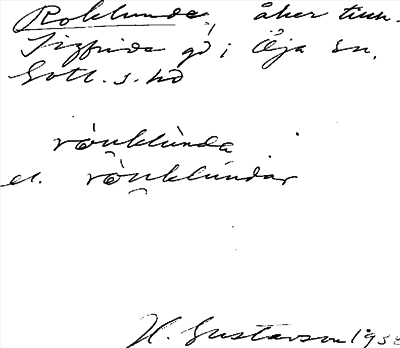 Roklunda, åker till
Sigfride gd i Öja sn.
Gotl. s. hd
rònklùnda
el. rònklùndar
H. Gustavson 1938